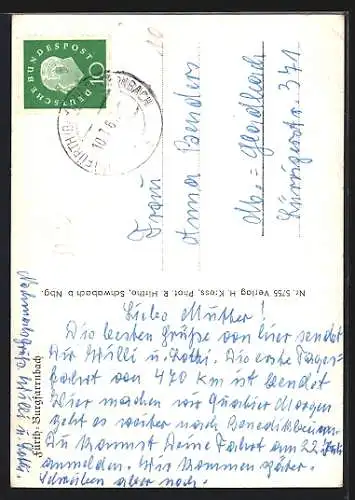 DEUTSCHE BUNDESPOST
10
FÜRTH
10.7.6
Frau
Anna Benders
M.=Gladbach
Lürrigerstr. 371
Nr. 5/55 Verlag H. Kress, Phot. R. Hirthe, Schwabach b. Nbg.
Fürth: Burgfarrnbach
Liebe Mutter!
Die besten Grüße von hier sendet
Dir Willi u. Kathi. Die erste Tages=
fahrt von 470 km ist beendet
Hier machen wir Quartier Morgen
geht es weiter nach Benediktbeuern.
Du kannst Deine Fahrt am 22 Juli
anmelden. Wir kommen später.
Schreiben aber noch.
Willi u.